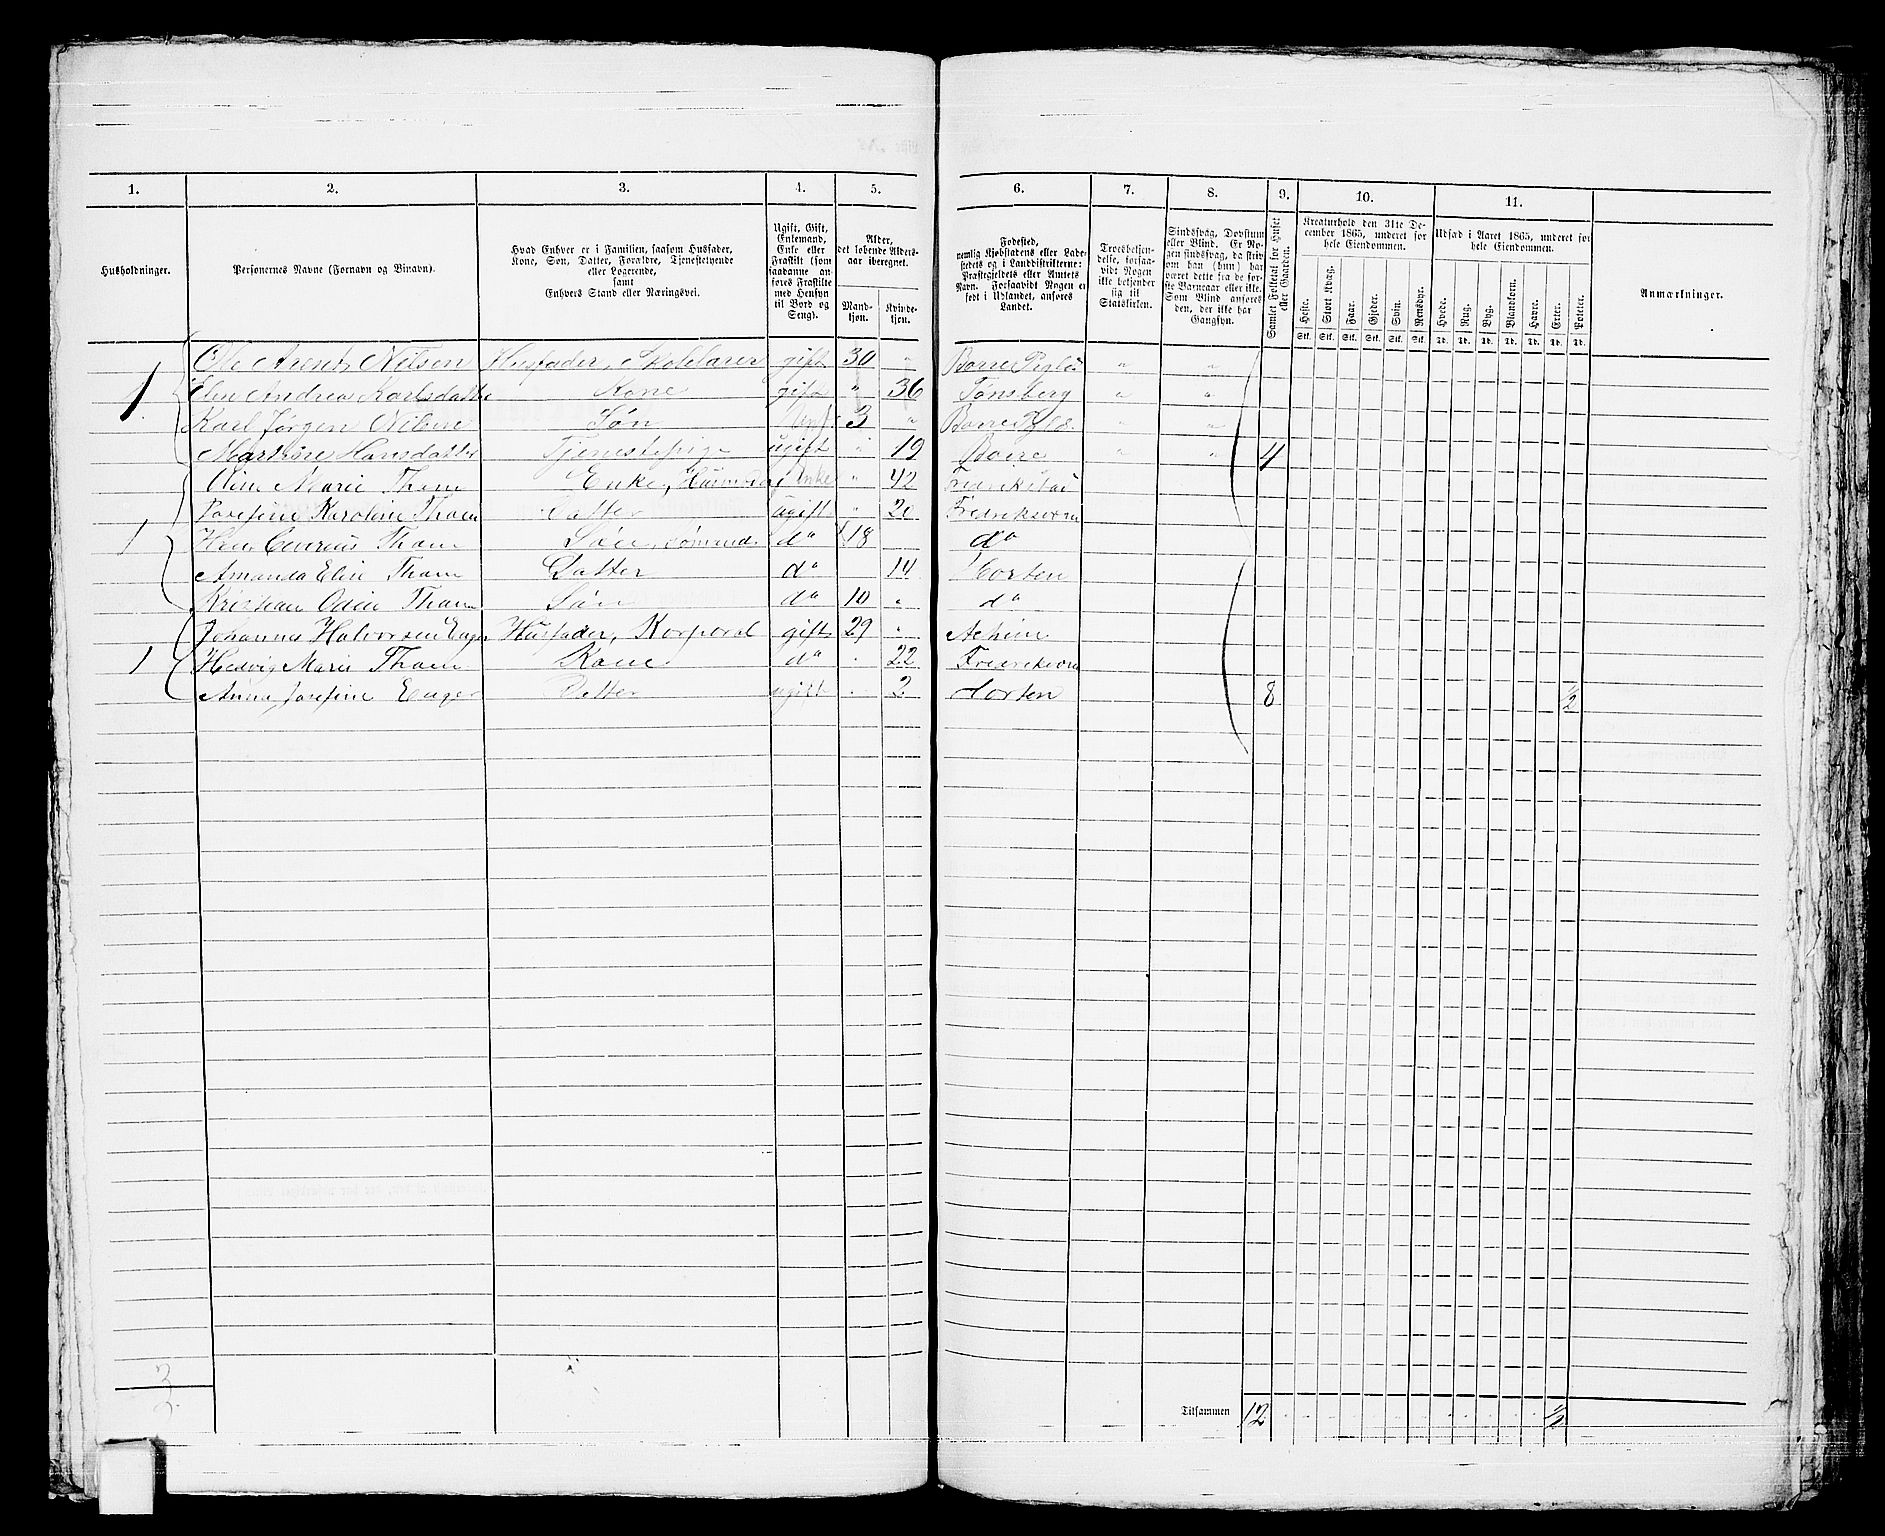 1. 2. 3. 4. 5. 6. 7. 8. 9. 10. 11.
Husholdninger.
Personernes Navne (Fornavn og Tilnavn).
Hvad Enhver er i Familien, saasom Husfader, Kone, Søn, Datter, Forældre, Tjenestetyende eller Logerende, samt Enhvers Stand eller Næringsvei.
Ugift, Gift, Enkemand, Enke eller Fraskilt (som saadanne anføres Fraskilte med Hensyn til Bord og Seng).
Alder, det løbende Aldersaar iberegnet.
Mandkjøn. Kvindekjøn.
Fødested, nemlig Kjøbstadens eller Ladestedets og i Landdistrikterne: Præstegjeldets eller Amtets Navn. Forsaavidt Nogen er født i Udlandet, anføres Landet.
Troesbekjendelse, forsaavidt Nogen ikke bekjender sig til Statskirken.
Sindssvag, Døvstum eller Blind. Er Nogen sindssvag, da skriv om han (hun) har været dette fra de første Barneaar eller ikke. Som Blind anføres den, der ikke har Gangsyn.
Samlet Folketal for Huset eller Gaarden.
Kreaturhold den 31te December 1865, underet for hele Eiendommen.
Heste. Stort Kvæg. Faar. Gjeder. Svin. Rensdyr.
Udsæd i Aaret 1865, underet for hele Eiendommen.
Hvede. Rug. Byg. Blandkorn. Havre. Erter. Poteter.
Anmærkninger.
Stk. Stk. Stk. Stk. Stk. Stk. Td. Td. Td. Td. Td. Td. Td.
Ole Arent Nilsen Husfader, Skolelærer gift 30 " Borre " "
1 Elen Andrea Karlsdatter Kone gift " 36 Tønsberg " "
Karl Jørgen Nilsen Søn 3 " Borre " "
Martine Hansdatter Tjenestepige ugift " 19 Borre " " 4
Oline Marie Tham Enke, Enke " 42
Josefine Karoline Tham Datter ugift " 20 Fredriksværn
1 Severius Tham Søn, Sømand d° 18 d°
Amanda Elise Tham Datter d° 14 Horten
Kristian Odin Tham Søn d° 10 " d°
Johannes Halvorsen Enger Husfader, Korporal gift 29 "
1 Hedvig Marie Tham Kone d° 22 Fredriksværn
Anna Josefine Enger Datter ugift 2 Horten 8 ½
3
Tilsammen 12 ½